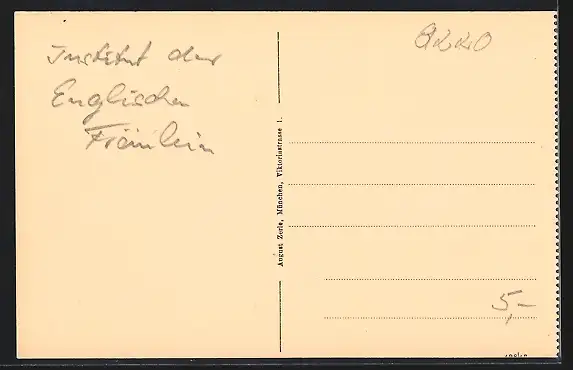 Institut der
Englischen
Fräulein
8220
August Zerle, München, Viktoriastrasse 1.
5,-